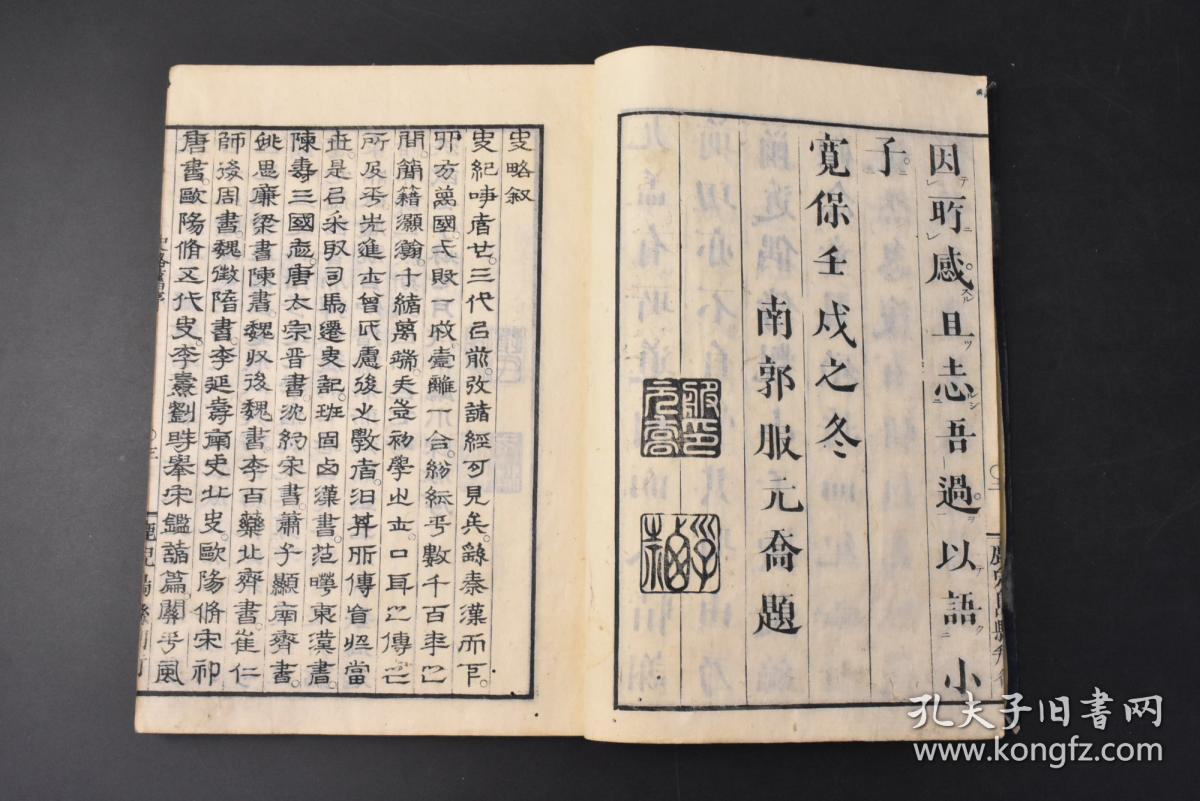 因所感且志吾過以語小
子
寬保壬戌之冬
南郭服元喬題
史略叙
史紀事者也三代以前攷諸經可見矣繇秦漢而下
卯方萬國一成一敗一離一合紛紜乎數千百年之
間簡籍灝瀚十緒萬端夫豈初學之士口耳之傳
所及乎先進士曾氏慮後之斅者汩其所傳音
是以采取司馬遷史記班固西漢書范曄東漢書
陳壽三國志唐太宗晋書沈約宋書蕭子顯南齊書
姚思廉梁書陳書魏收後魏書李百藥北齊書崔仁
師後周書魏徵隋書李延壽南史北史歐陽脩宋祁
唐書歐陽脩五代史李燾劉時舉宋鑑諸篇關乎風
孔夫子旧书网
www.kongfz.com